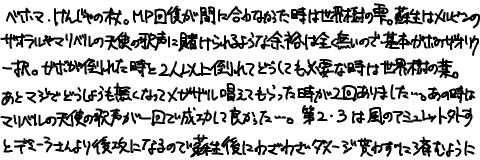 ベホマ、けんじゃの杖。MP回復が間に合わなかった時は世界樹の雫。蘇生はメルビンの
ザオラルやマリベルの天使の歌声に賭けられるような余裕は全く無いので基本ガボのザオリク
一択。ガボが倒れた時と2人以上倒れてどうしても必要な時は世界樹の葉。
あとマジでどうしようも無くなってメガザル唱えてもらった時が2回ありました…。あの時は
マリベルの天使の歌声が一回で成功して良かった…。第2・3は風のアミュレットのおかげ
とデミーラさんより後攻になるので蘇生後にわざわざダメージ喰わずに済むように